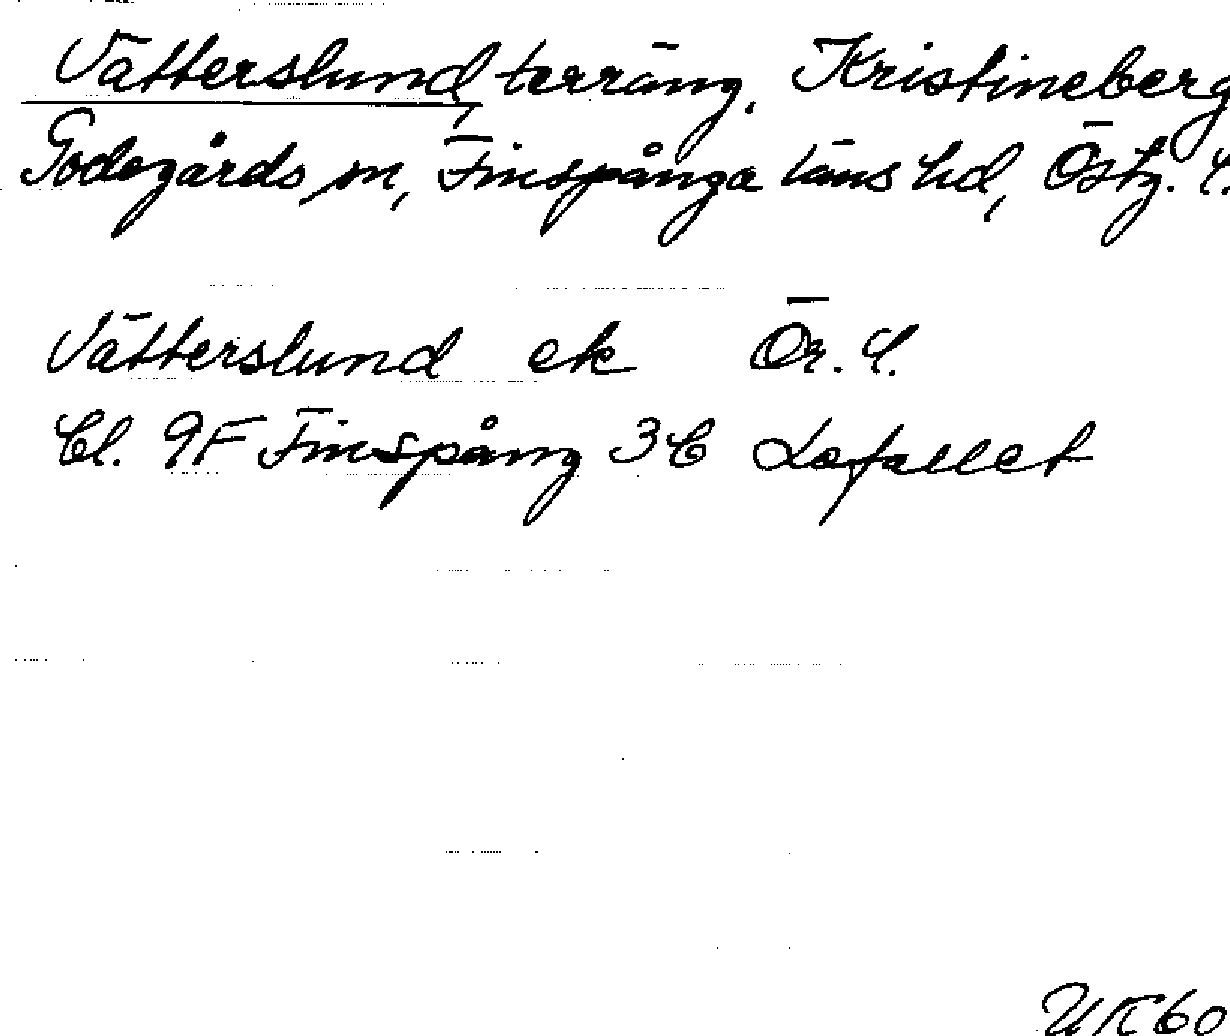 Vätterslund, terräng, Kristineberg
Godegårds sn, Finspånga läns hd, Östg. l.
Vätterslund ek Ör. l.
Bl. 9F Finspång 3C Lofallet
UR60